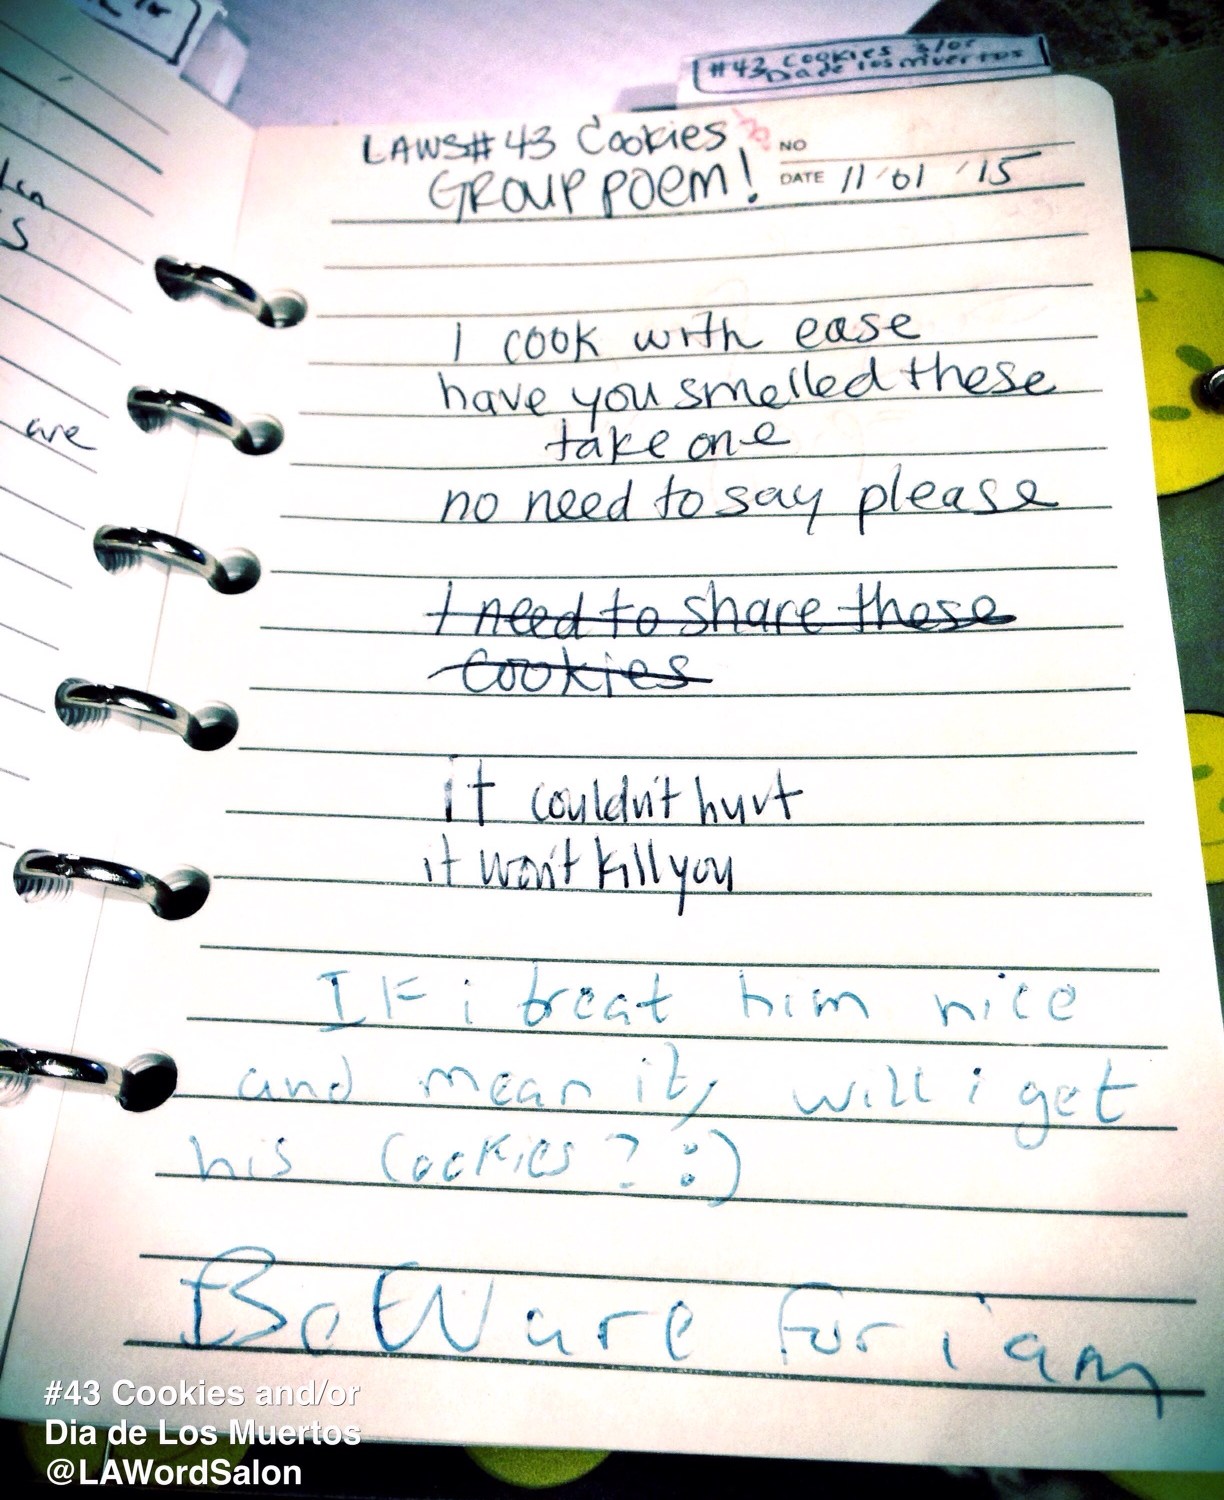 #43 Cookies &/or
Dia de los muertos
LAWS#43 Cookies
GROUP POEM!
NO
DATE 11/01/'15
s
are
I cook with ease
have you smelled these
take one
no need to say please
I need to share these
cookies
it couldn't hurt
it won't kill you
IF i treat him nice
and mean it, will i get
his Cookies? :)
BeWare for i am
#43 Cookies and/or
Dia de Los Muertos
@LAWordSalon